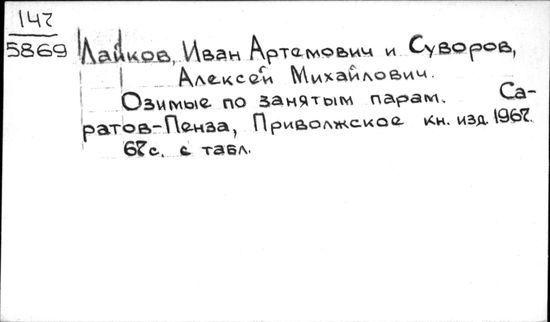 147
5869 Лайков, Иван Артамович и Суворов,
Алексей Михайлович.
Озимые по занятым парам. Са-
ратов-Пенза, Приволжское кн. изд. 1967.
67с. с табл.